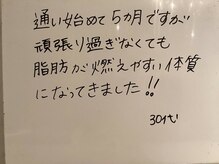 通い始めて5カ月ですが
頑張り過ぎなくても
脂肪が燃えやすい体質
になってきました!!
30代